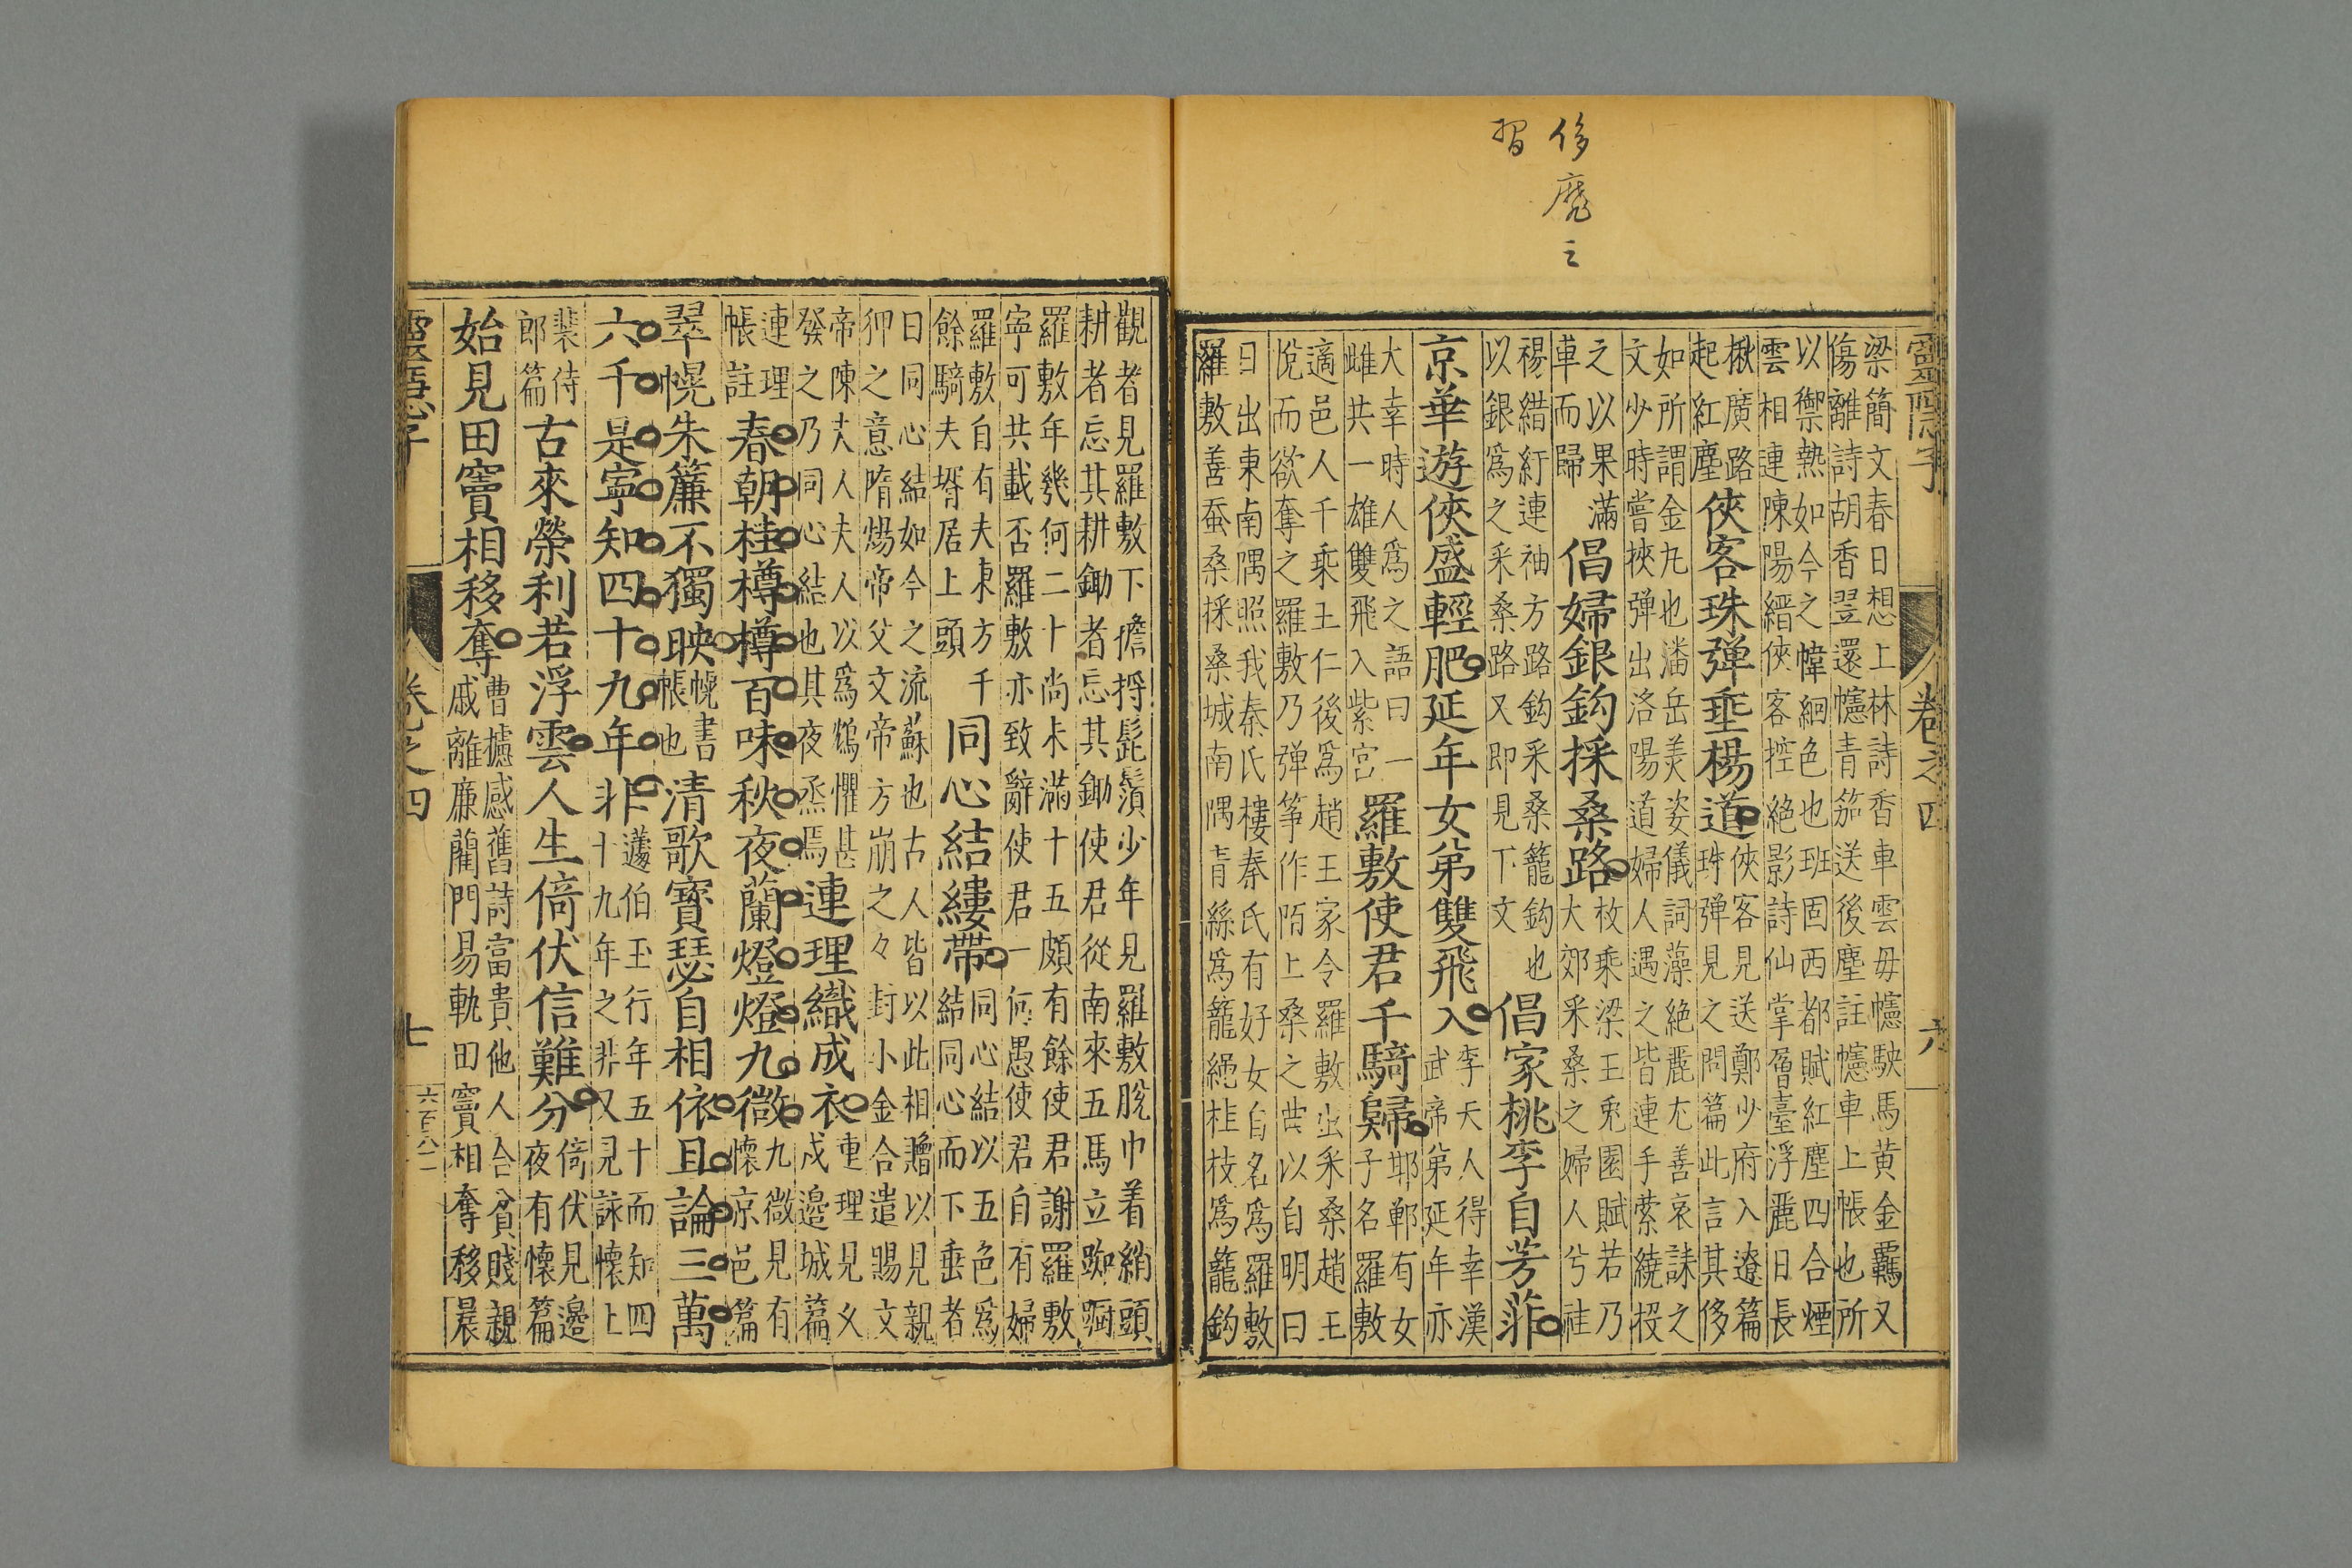 侈
靈隱子 卷之四 六
梁簡文春日想上林詩香車雲母幰駛馬黃金羈又
傷離詩胡香翌還幰青笳送後塵註幰車上帳也所
以禦熱如今之幃緗色也班固西都賦紅塵四合煙
雲相連陳陽縉俠客控絕影詩仙掌層臺浮麗日長
楸廣路
起紅塵
俠客珠彈垂楊道
俠客見送鄭少府入遼篇
珠彈見之問篇此言其侈
如所謂金九也潘岳美姿儀詞藻絕麗尤善哀誄之
文少時嘗挾彈出洛陽道婦人遇之皆連手縈繞投
之以果滿
車而歸
倡婦銀鈎採桑路
枚乘梁王兎園賦若乃
大郊采桑之婦人兮袿
裼緒紆連袖方路鈎采桑籠鈎也
以銀爲之采桑路又即見下文
倡家桃李自芳菲
京華遊俠盛輕肥延年女弟雙飛入
李夫人得幸漢
武帝弟延年亦
大幸時人爲之語曰一
雌共一雄雙飛入紫宮
羅敷使君千騎歸
邯鄲有女
子名羅敷
適邑人千乘王仁後爲趙王家令羅敷出采桑趙王
悅而欲奪之羅敷乃彈筝作陌上桑之曲以自明曰
日出東南隅照我秦氏樓秦氏有好女自名爲羅敷
羅敷善蚕桑採桑城南隅青絲爲籠繩桂枝爲籠鈎
觀者見羅敷下擔捋髭鬚少年見羅敷脫巾着綃頭
耕者忘其耕鋤者忘其鋤使君從南來五馬立踟躕
羅敷年幾何二十尚未滿十五頗有餘使君謝羅敷
寧可共載否羅敷亦致辭使君一何愚使君自有婦
羅敷自有夫東方千
餘騎夫壻居上頭
同心結縷帶
同心結以五色爲
結同心而下垂者
曰同心結如今之流蘇也古人皆以此相贈以見親
狎之意隋煬帝父文帝方崩之々封小金合遣賜文
帝陳夫人夫人以爲鴆懼甚
發之乃同心結也其夜烝焉
連理織成衣
連理見乂
戍邊城篇
連理
帳註
春朝桂樽樽百味秋夜蘭燈燈九微
九微見有
懷京邑篇
翠幌朱簾不獨映
幌書
帳也
清歌寶瑟自相依且論三萬
六千是寧知四十九年非
蘧伯玉行年五十而知四
十九年之非又見詠懷上
裴侍
郎篇
古來榮利若浮雲人生倚伏信難分
倚伏見邊
夜有懷篇
始見田竇相移奪
曹攄感舊詩富貴他人合貧賤親
戚離廉藺門易軌田竇相奪移晨
卷之四 七